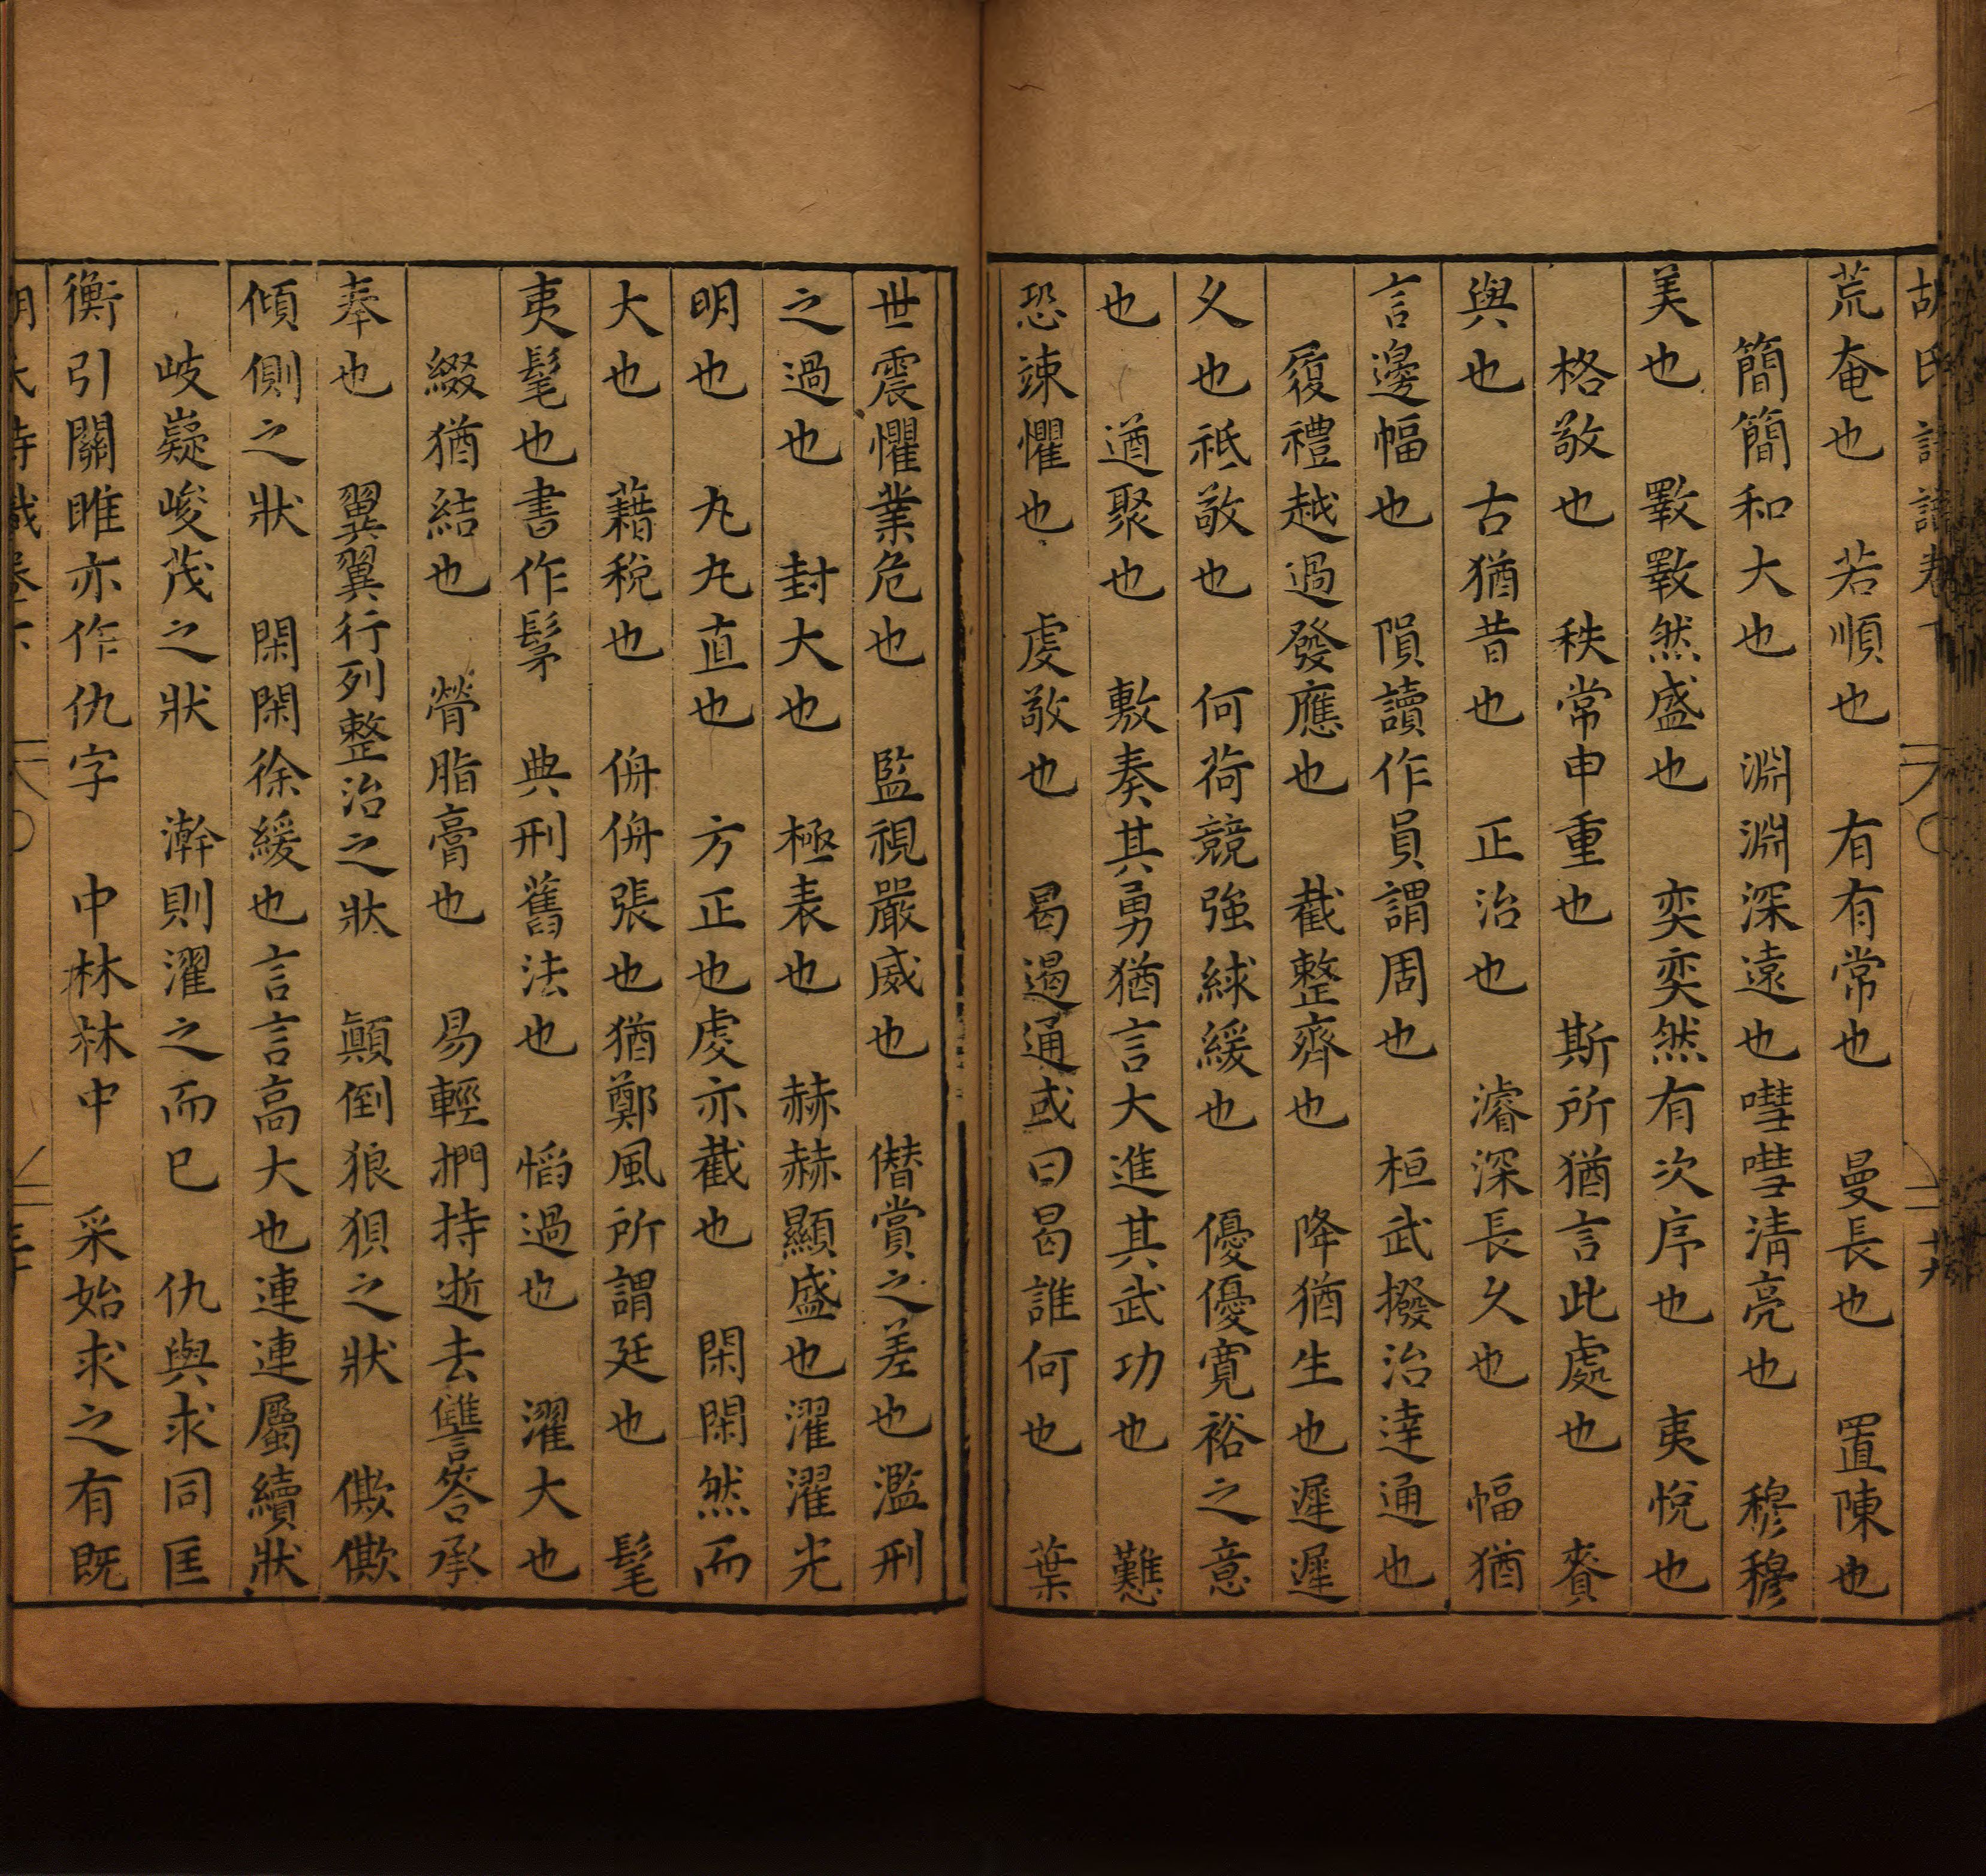 胡氏詩識卷下
荒奄也　若順也　有有常也　曼長也　置陳也
簡簡和大也　淵淵深遠也嘒嘒淸亮也　穆穆
美也　斁斁然盛也　奕奕然有次序也　夷悅也
格敬也　秩常申重也　斯所猶言此處也　賚
與也　古猶昔也　正治也　濬深長久也　幅猶
言邊幅也　隕讀作員謂周也　桓武撥治達通也
履禮越過發應也　截整齊也　降猶生也遲遲
久也祗敬也　何荷競強絿緩也　優優寬裕之意
也　遒聚也　敷奏其勇猶言大進其武功也　戁
恐竦懼也　虔敬也　曷遏通或曰曷誰何也　葉
世震懼業危也　監視嚴威也　僭賞之差也濫刑
之過也　封大也　極表也　赫赫顯盛也濯濯光
明也　丸丸直也　方正也虔亦截也　閑閑然而
大也　藉稅也　侜侜張也猶鄭風所謂廷也　髦
夷髦也書作髳　典刑舊法也　慆過也　濯大也
綴猶結也　膋脂膏也　易輕捫持逝去讐答承
奉也　翼翼行列整治之狀　顛倒狼狽之狀　僛僛
傾側之狀　閑閑徐緩也言言高大也連連屬續狀
岐嶷峻茂之狀　澣則濯之而已　仇與求同匡
衡引關雎亦作仇字　中林林中　采始求之有既